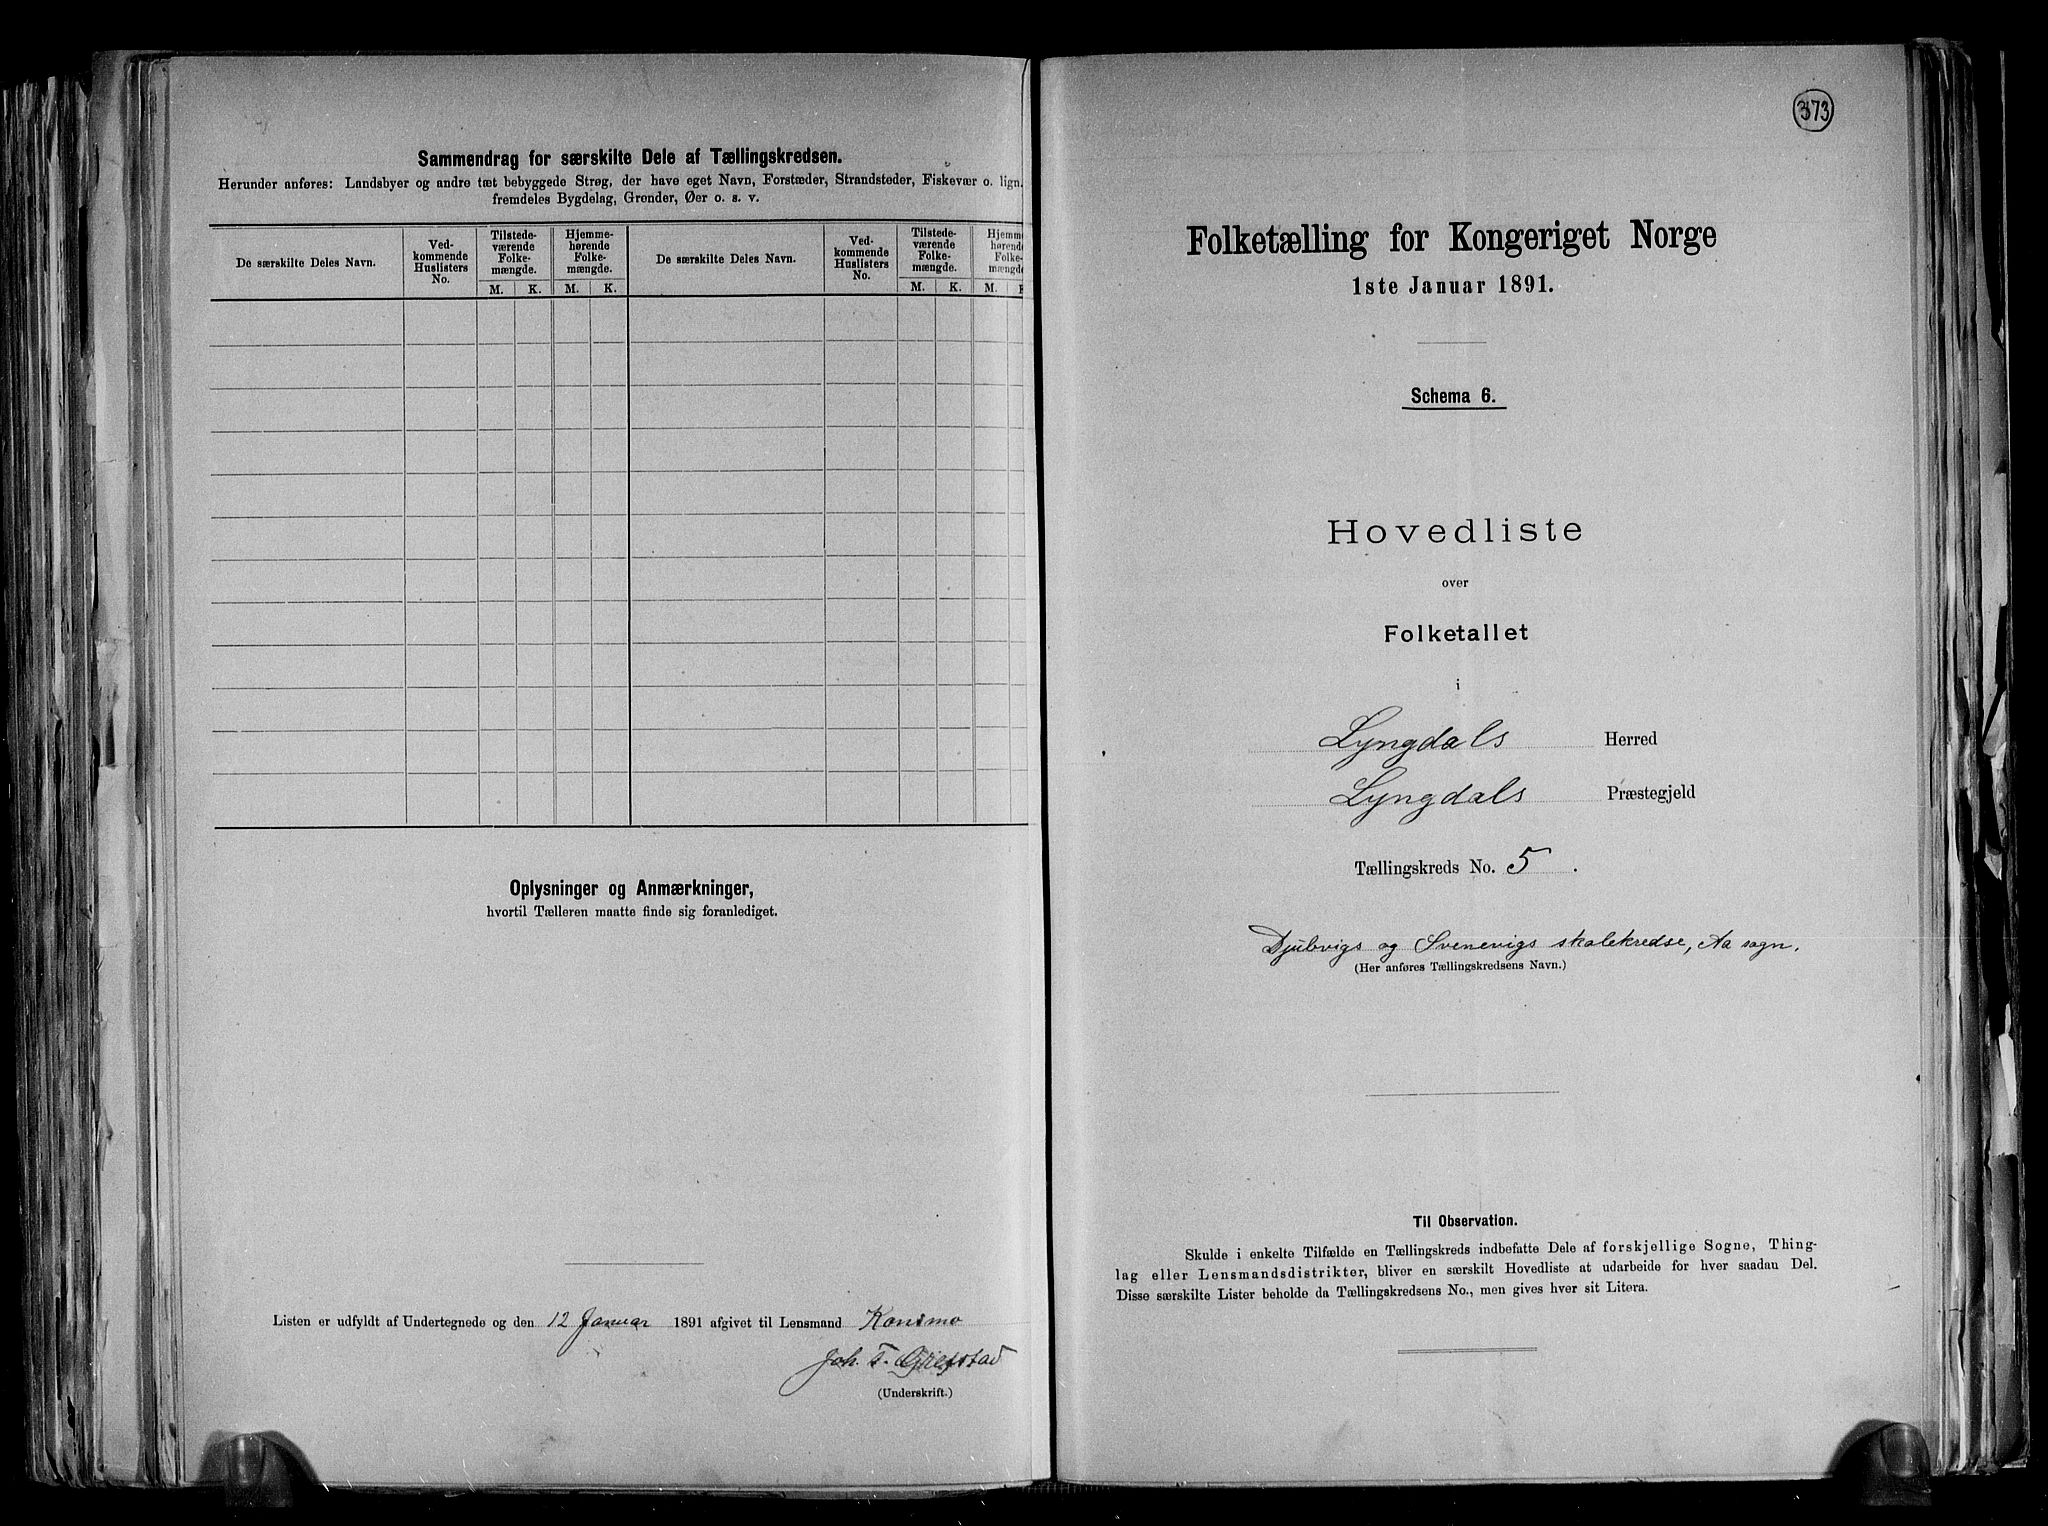 Sammendrag for særskilte Dele af Tællingskredsen.
Herunder anføres: Landsbyer og andre tæt bebyggede Strøg, der have eget Navn, Forstæder, Strandsteder, Fiskevær o. lign.
fremdeles Bygdelag, Grender, Øer o. s. v.
De særskilte Deles Navn.
Ved-
kommende
Huslisters
No.
Tilstede-
værende
Folke-
mængde.
M. K.
Hjemme-
hørende
Folke-
mængde.
M. K.
De særskilte Deles Navn.
Ved-
kommende
Huslisters
No.
Tilstede-
værende
Folke-
mængde.
M. K.
Hjemme-
hørende
Folke-
mængde
M.
Oplysninger og Anmærkninger,
hvortil Tælleren maatte finde sig foranlediget.
Listen er udfyldt af Undertegnede og den 12 Januar 1891 afgivet til Lensmand Konsmo
Joh. T. Grefstad
(Underskrift.)
373
Folketælling for Kongeriget Norge
1ste Januar 1891.
Schema 6.
Hovedliste
over
Folketallet
i
Lyngdals Herred
Lyngdals Præstegjeld
Tællingskreds No. 5.
Djubvigs og Svenevigs skolekredse, Aa sogn.
(Her anføres Tællingskredsens Navn.)
Til Observation.
Skulde i enkelte Tilfælde en Tællingskreds indbefatte Dele af forskjellige Sogne, Thing-
lag eller Lensmandsdistrikter, bliver en særskilt Hovedliste at udarbeide for hver saadan Del.
Disse særskilte Lister beholde da Tællingskredsens No., men gives hver sit Litera.